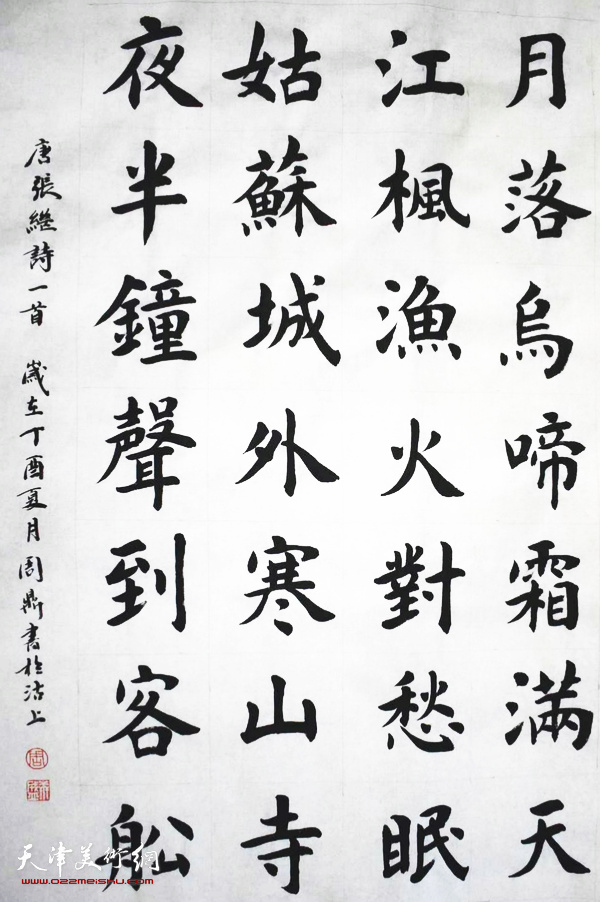 月落烏啼霜滿天
江楓漁火對愁眠
姑蘇城外寒山寺
夜半鐘聲到客船
唐張繼詩一首 歲在丁酉夏月周鼎書於沽上
天津美術網
www.022meishu.com